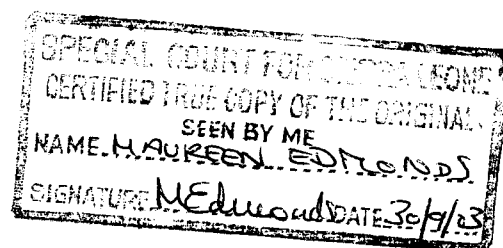 SPECIAL COURT FOR SIERRA LEONE
CERTIFIED TRUE COPY OF THE ORIGINAL
SEEN BY ME
NAME. MAUREEN EDMONDS
SIGNATURE MEdmonds DATE 30/9/03